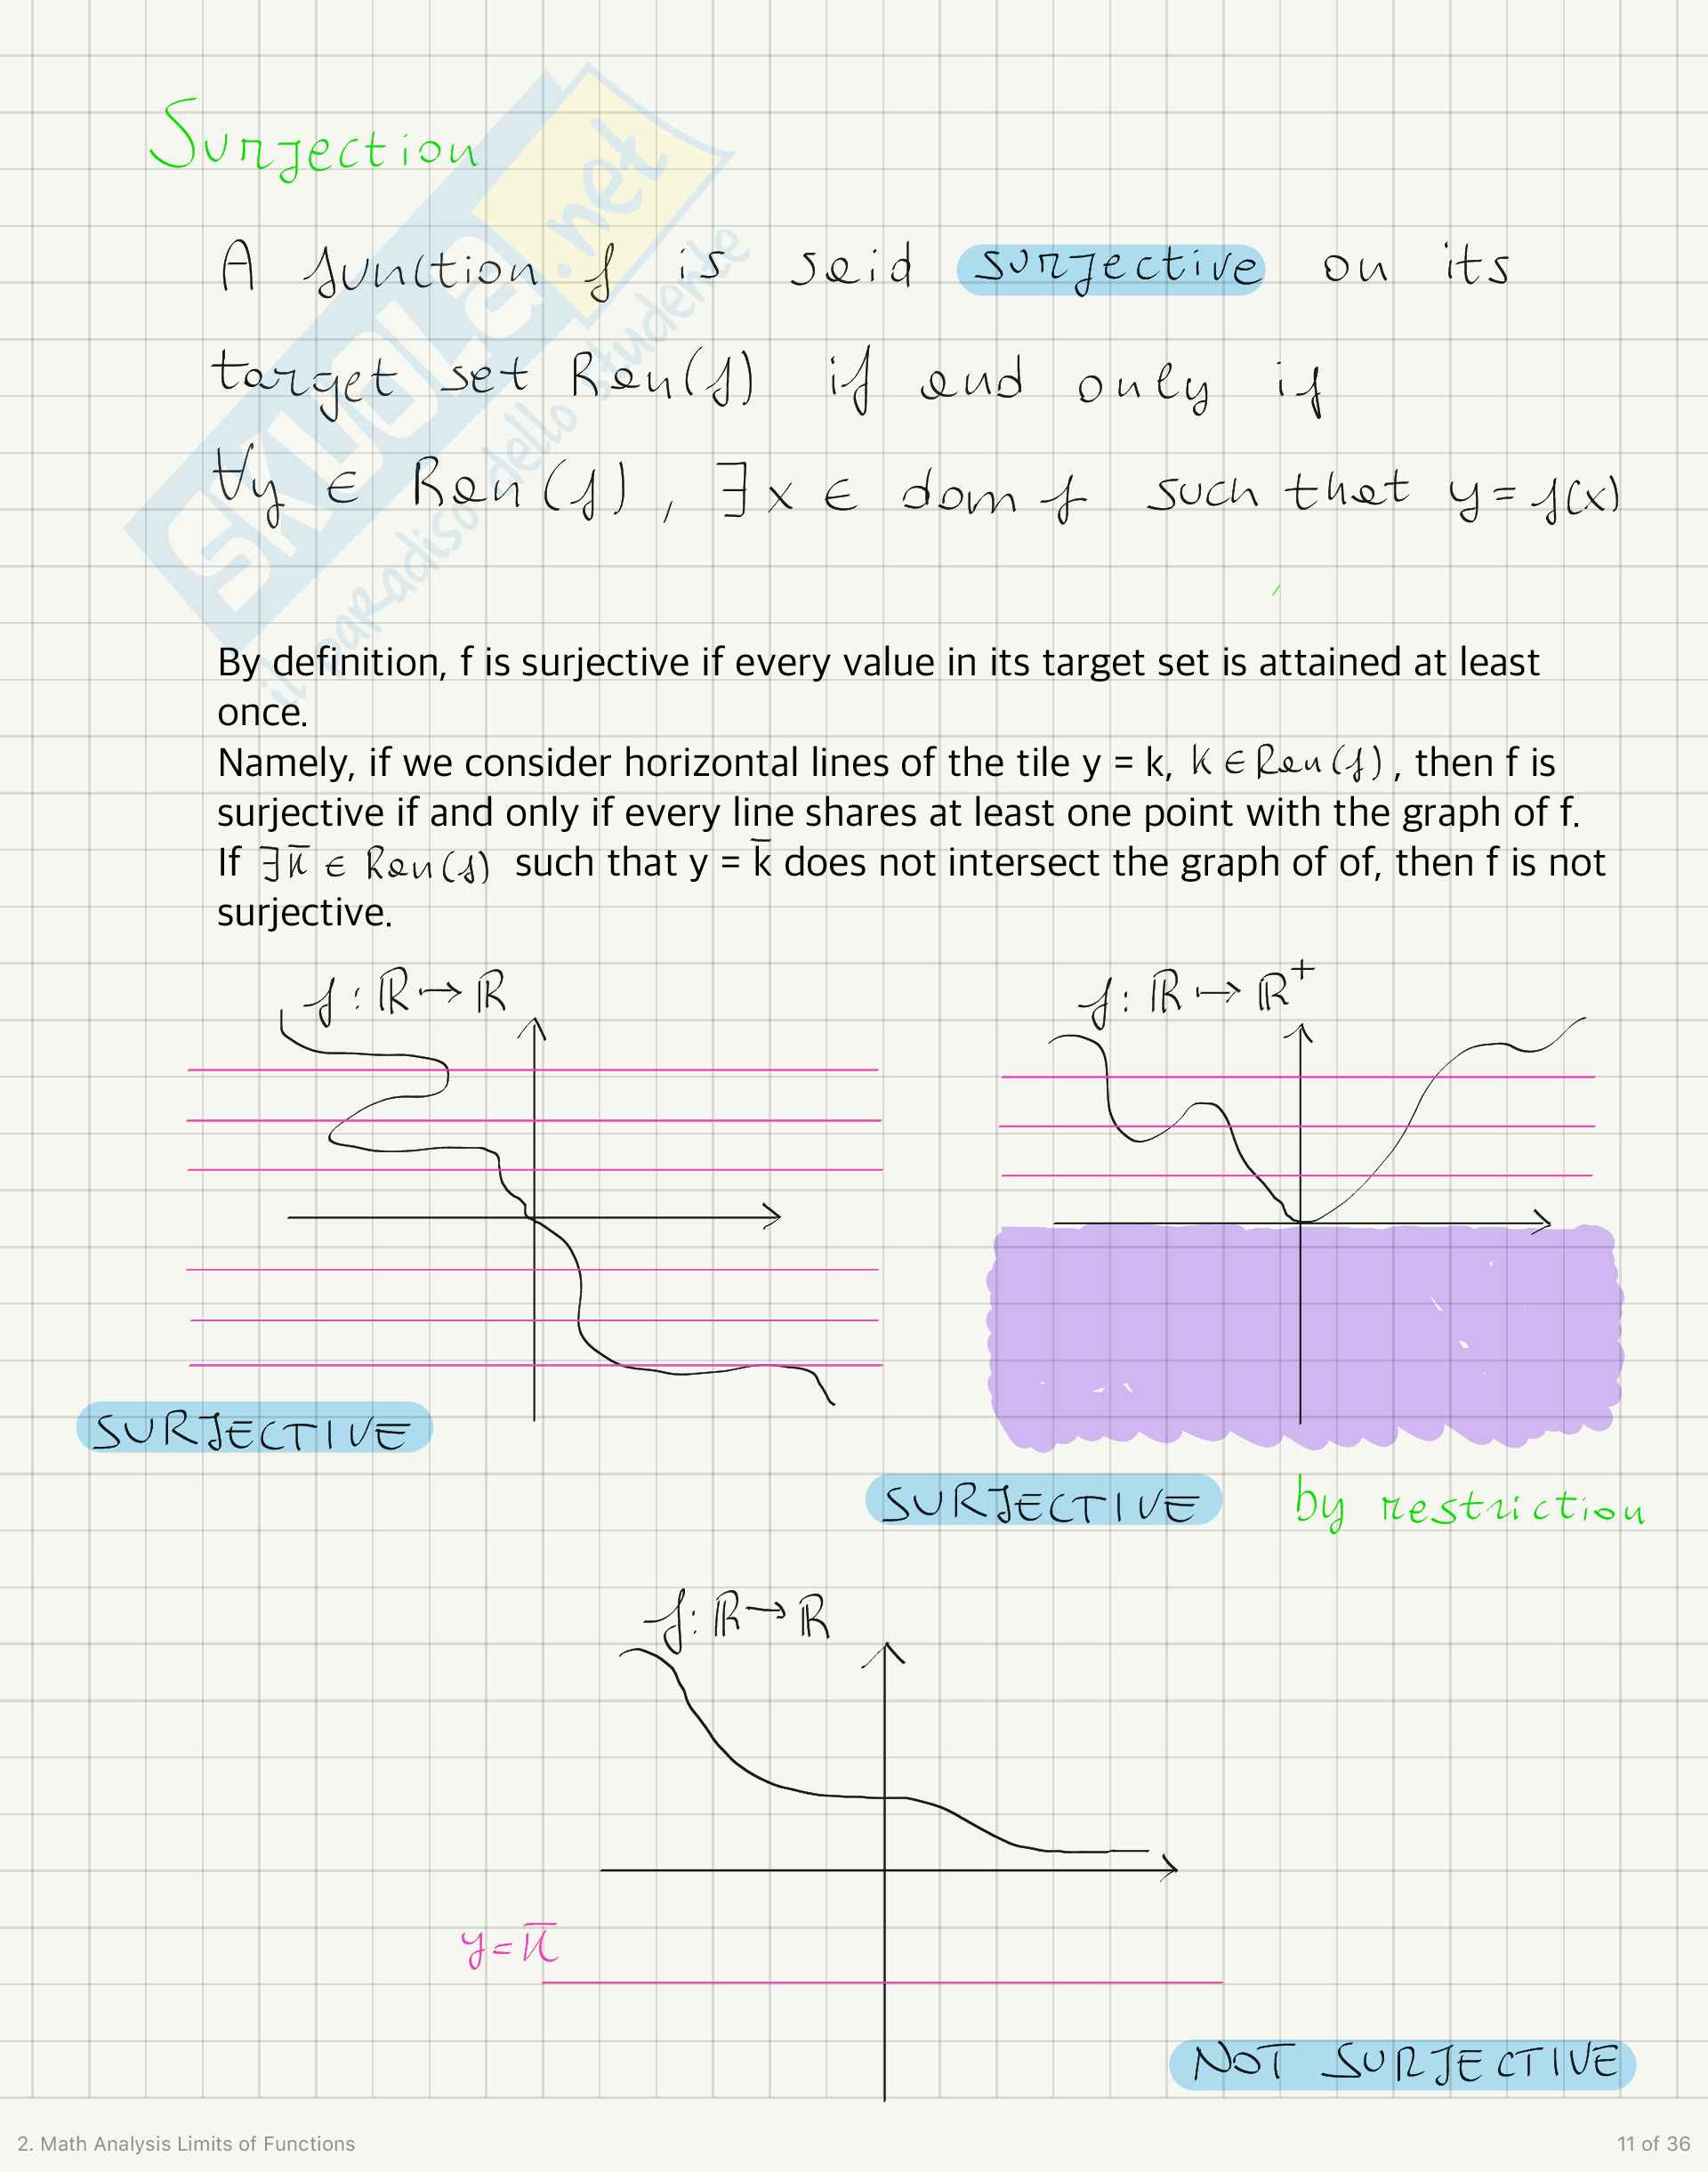 Surjection
A function f is said surjective on its
target set Ran(f) if and only if
∀y ∈ Ran(f), ∃x ∈ dom f such that y = f(x)
By definition, f is surjective if every value in its target set is attained at least
once.
Namely, if we consider horizontal lines of the tile y = k, k ∈ Ran(f), then f is
surjective if and only if every line shares at least one point with the graph of f.
If ∃k̅ ∈ Ran(f) such that y = k̅ does not intersect the graph of of, then f is not
surjective.
f: ℝ ↦ ℝ
f: ℝ ↦ ℝ⁺
SURJECTIVE
SURJECTIVE by restriction
f: ℝ → ℝ
y = k̅
NOT SURJECTIVE
SKUOLA.net
il paradiso dello studente
2. Math Analysis Limits of Functions
11 of 36